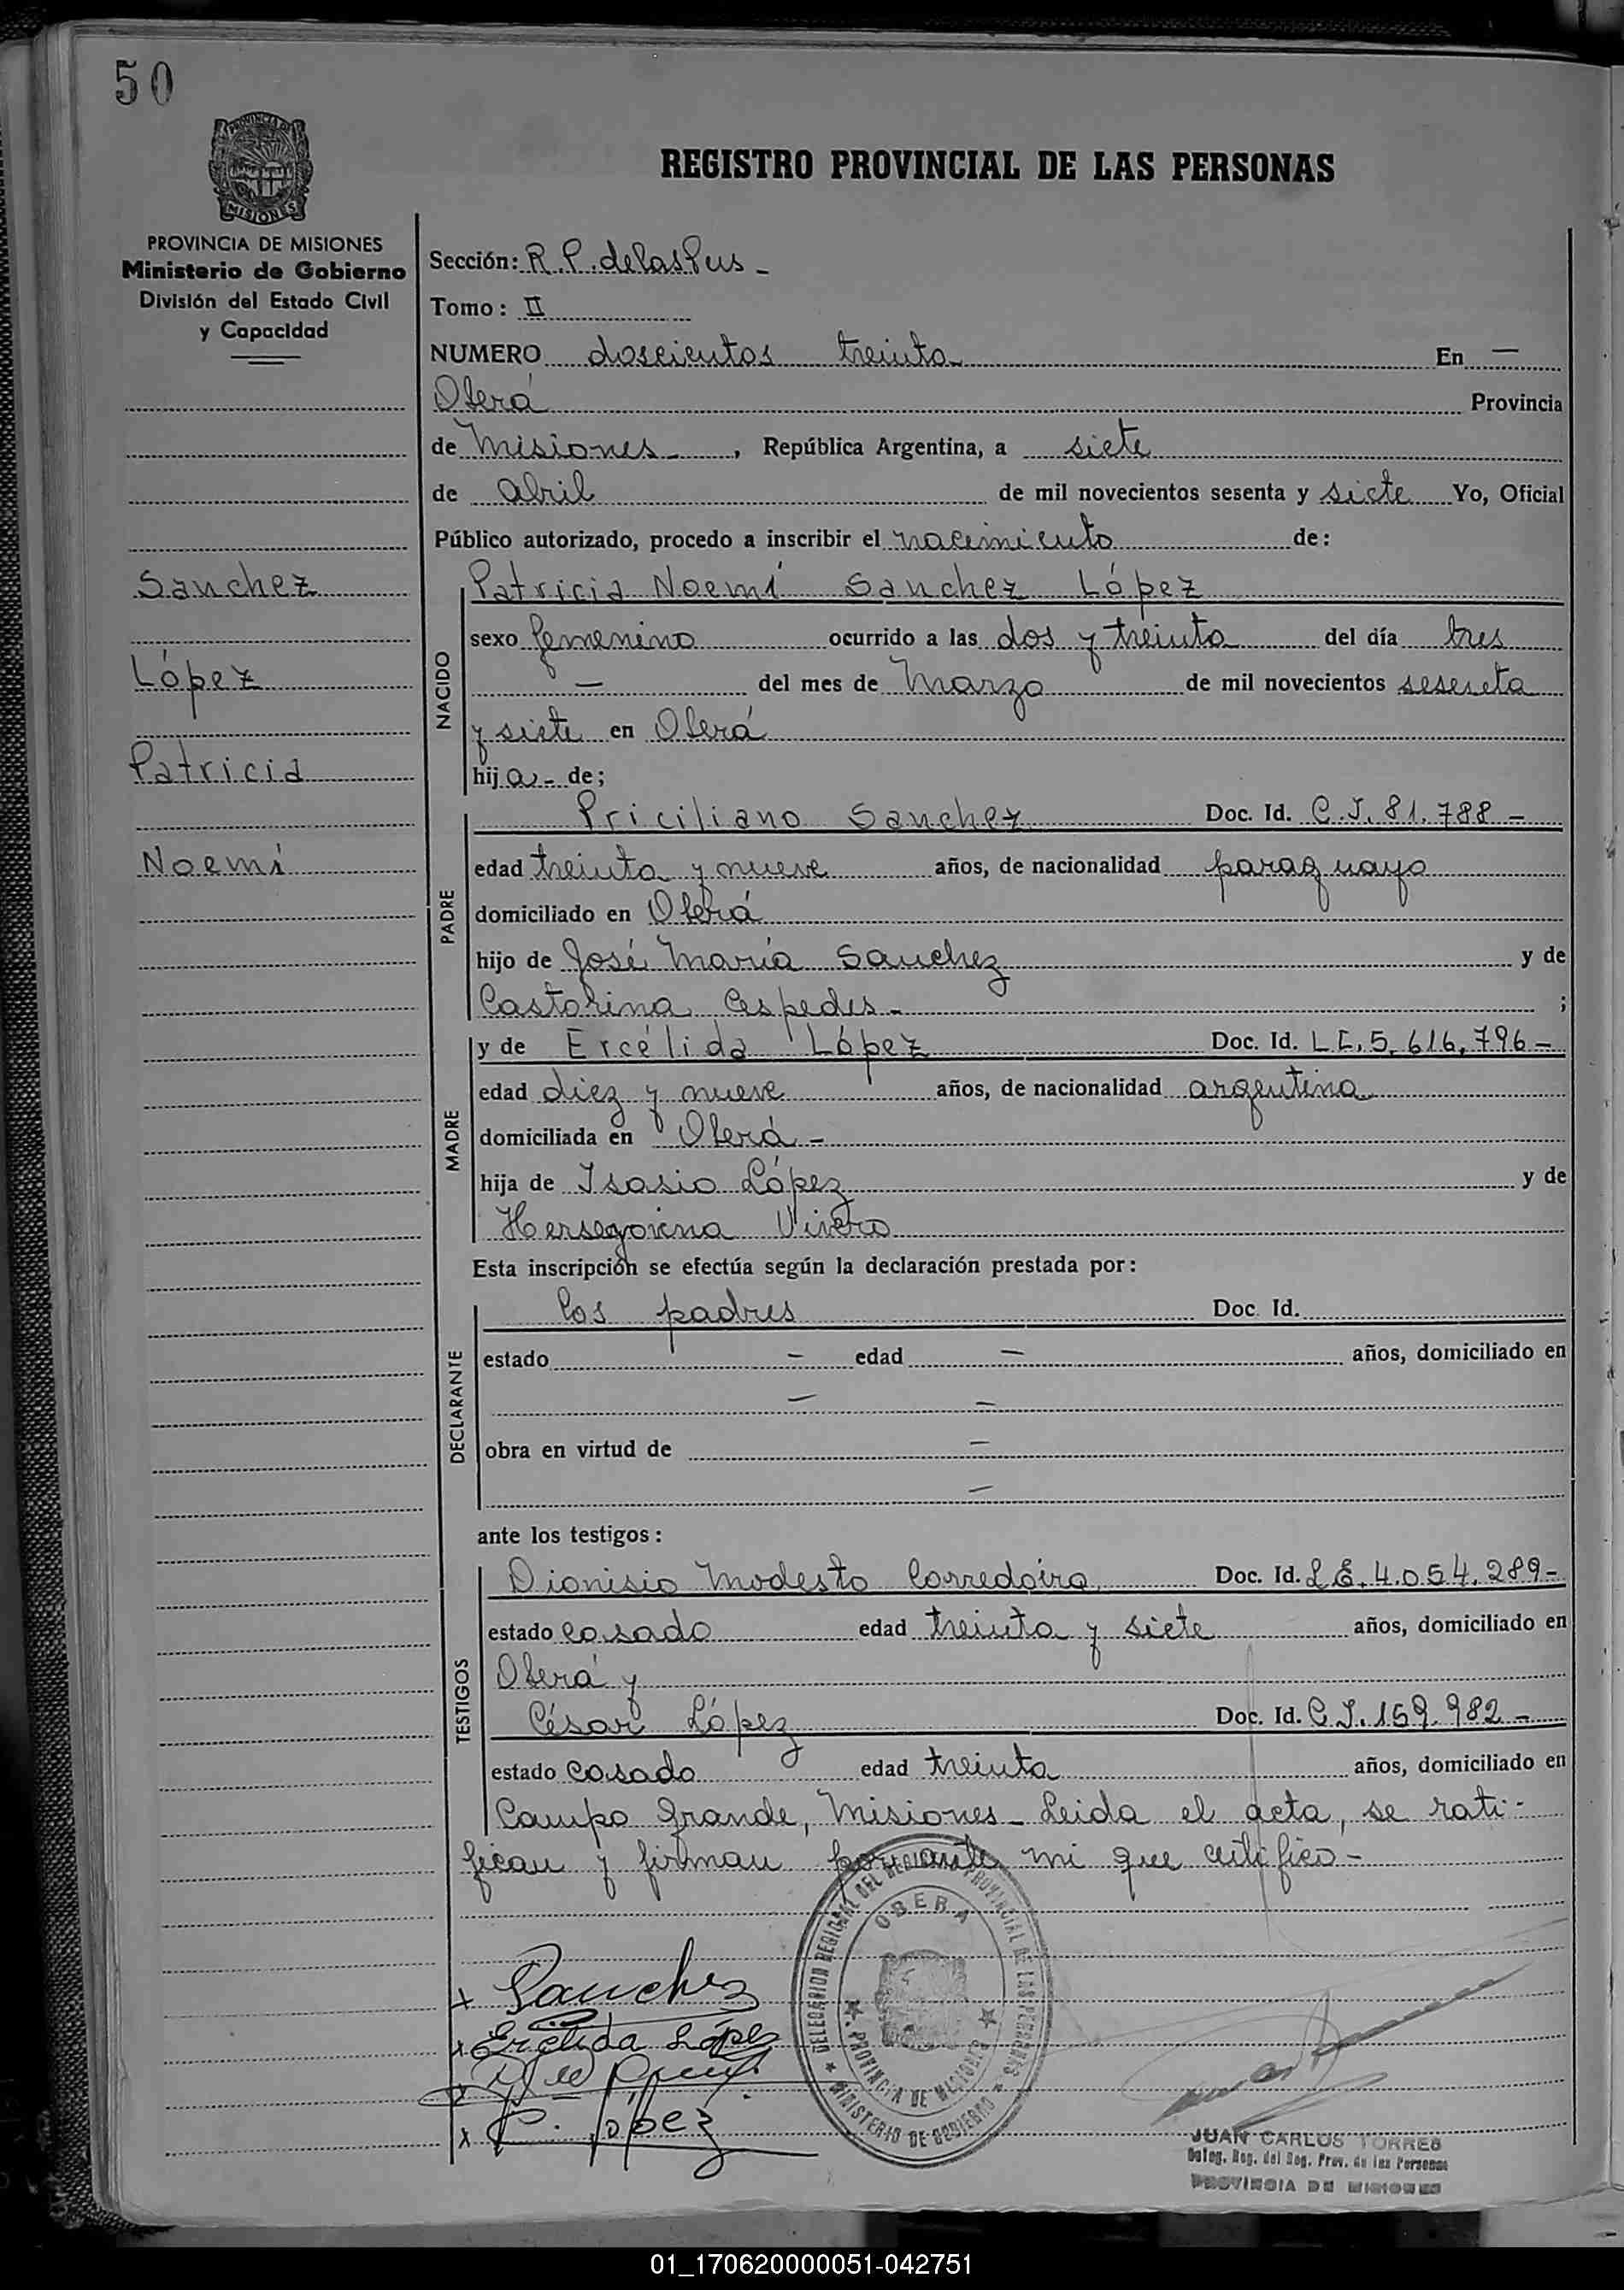 50
PROVINCIA DE MISIONES
Ministerio de Gobierno
División del Estado Civil
y Capacidad
REGISTRO PROVINCIAL DE LAS PERSONAS
Sección: R.P. de las Pers -
Tomo: II
NUMERO doscientos treinta En —
Oberá Provincia
de Misiones - , República Argentina, a siete
de abril de mil novecientos sesenta y siete Yo, Oficial
Público autorizado, procedo a inscribir el nacimiento de:
Sanchez
López
Patricia
Noemí
NACIDO
Patricia Noemí Sanchez López
sexo femenino ocurrido a las dos y treinta del día tres
— del mes de Marzo de mil novecientos sesenta
y siete en Oberá
hija - de;
PADRE
Priciliano Sanchez Doc. Id. C.I. 81.788 -
edad treinta y nueve años, de nacionalidad paraguayo
domiciliado en Oberá
hijo de José María Sanchez y de
Castorina Cespedes - ;
MADRE
y de Ercélida López Doc. Id. L.C. 5.616.796 -
edad diez y nueve años, de nacionalidad argentina
domiciliada en Oberá -
hija de Isasio López y de
Hersegovina Vivero
Esta inscripción se efectúa según la declaración prestada por:
DECLARANTE
los padres Doc. Id.
estado — edad — años, domiciliado en
— —
obra en virtud de —
—
ante los testigos:
TESTIGOS
Dionisio Modesto Corredoira Doc. Id. L.E. 4.054.289 -
estado casado edad treinta y siete años, domiciliado en
Oberá y
César López Doc. Id. C.I. 159.982 -
estado casado edad treinta años, domiciliado en
Campo Grande, Misiones - Leida el acta, se rati-
fican y firman por ante mi que certifico -
x Sanchez
x Ercelida López
x
x C. López
DELEGACION REGIONAL DEL REGISTRO PROVINCIAL DE LAS PERSONAS
OBERA
PROVINCIA DE MISIONES
MINISTERIO DE GOBIERNO
JUAN CARLOS TORRES
Deleg. Reg. del Reg. Prov. de las Personas
PROVINCIA DE MISIONES
01_170620000051-042751